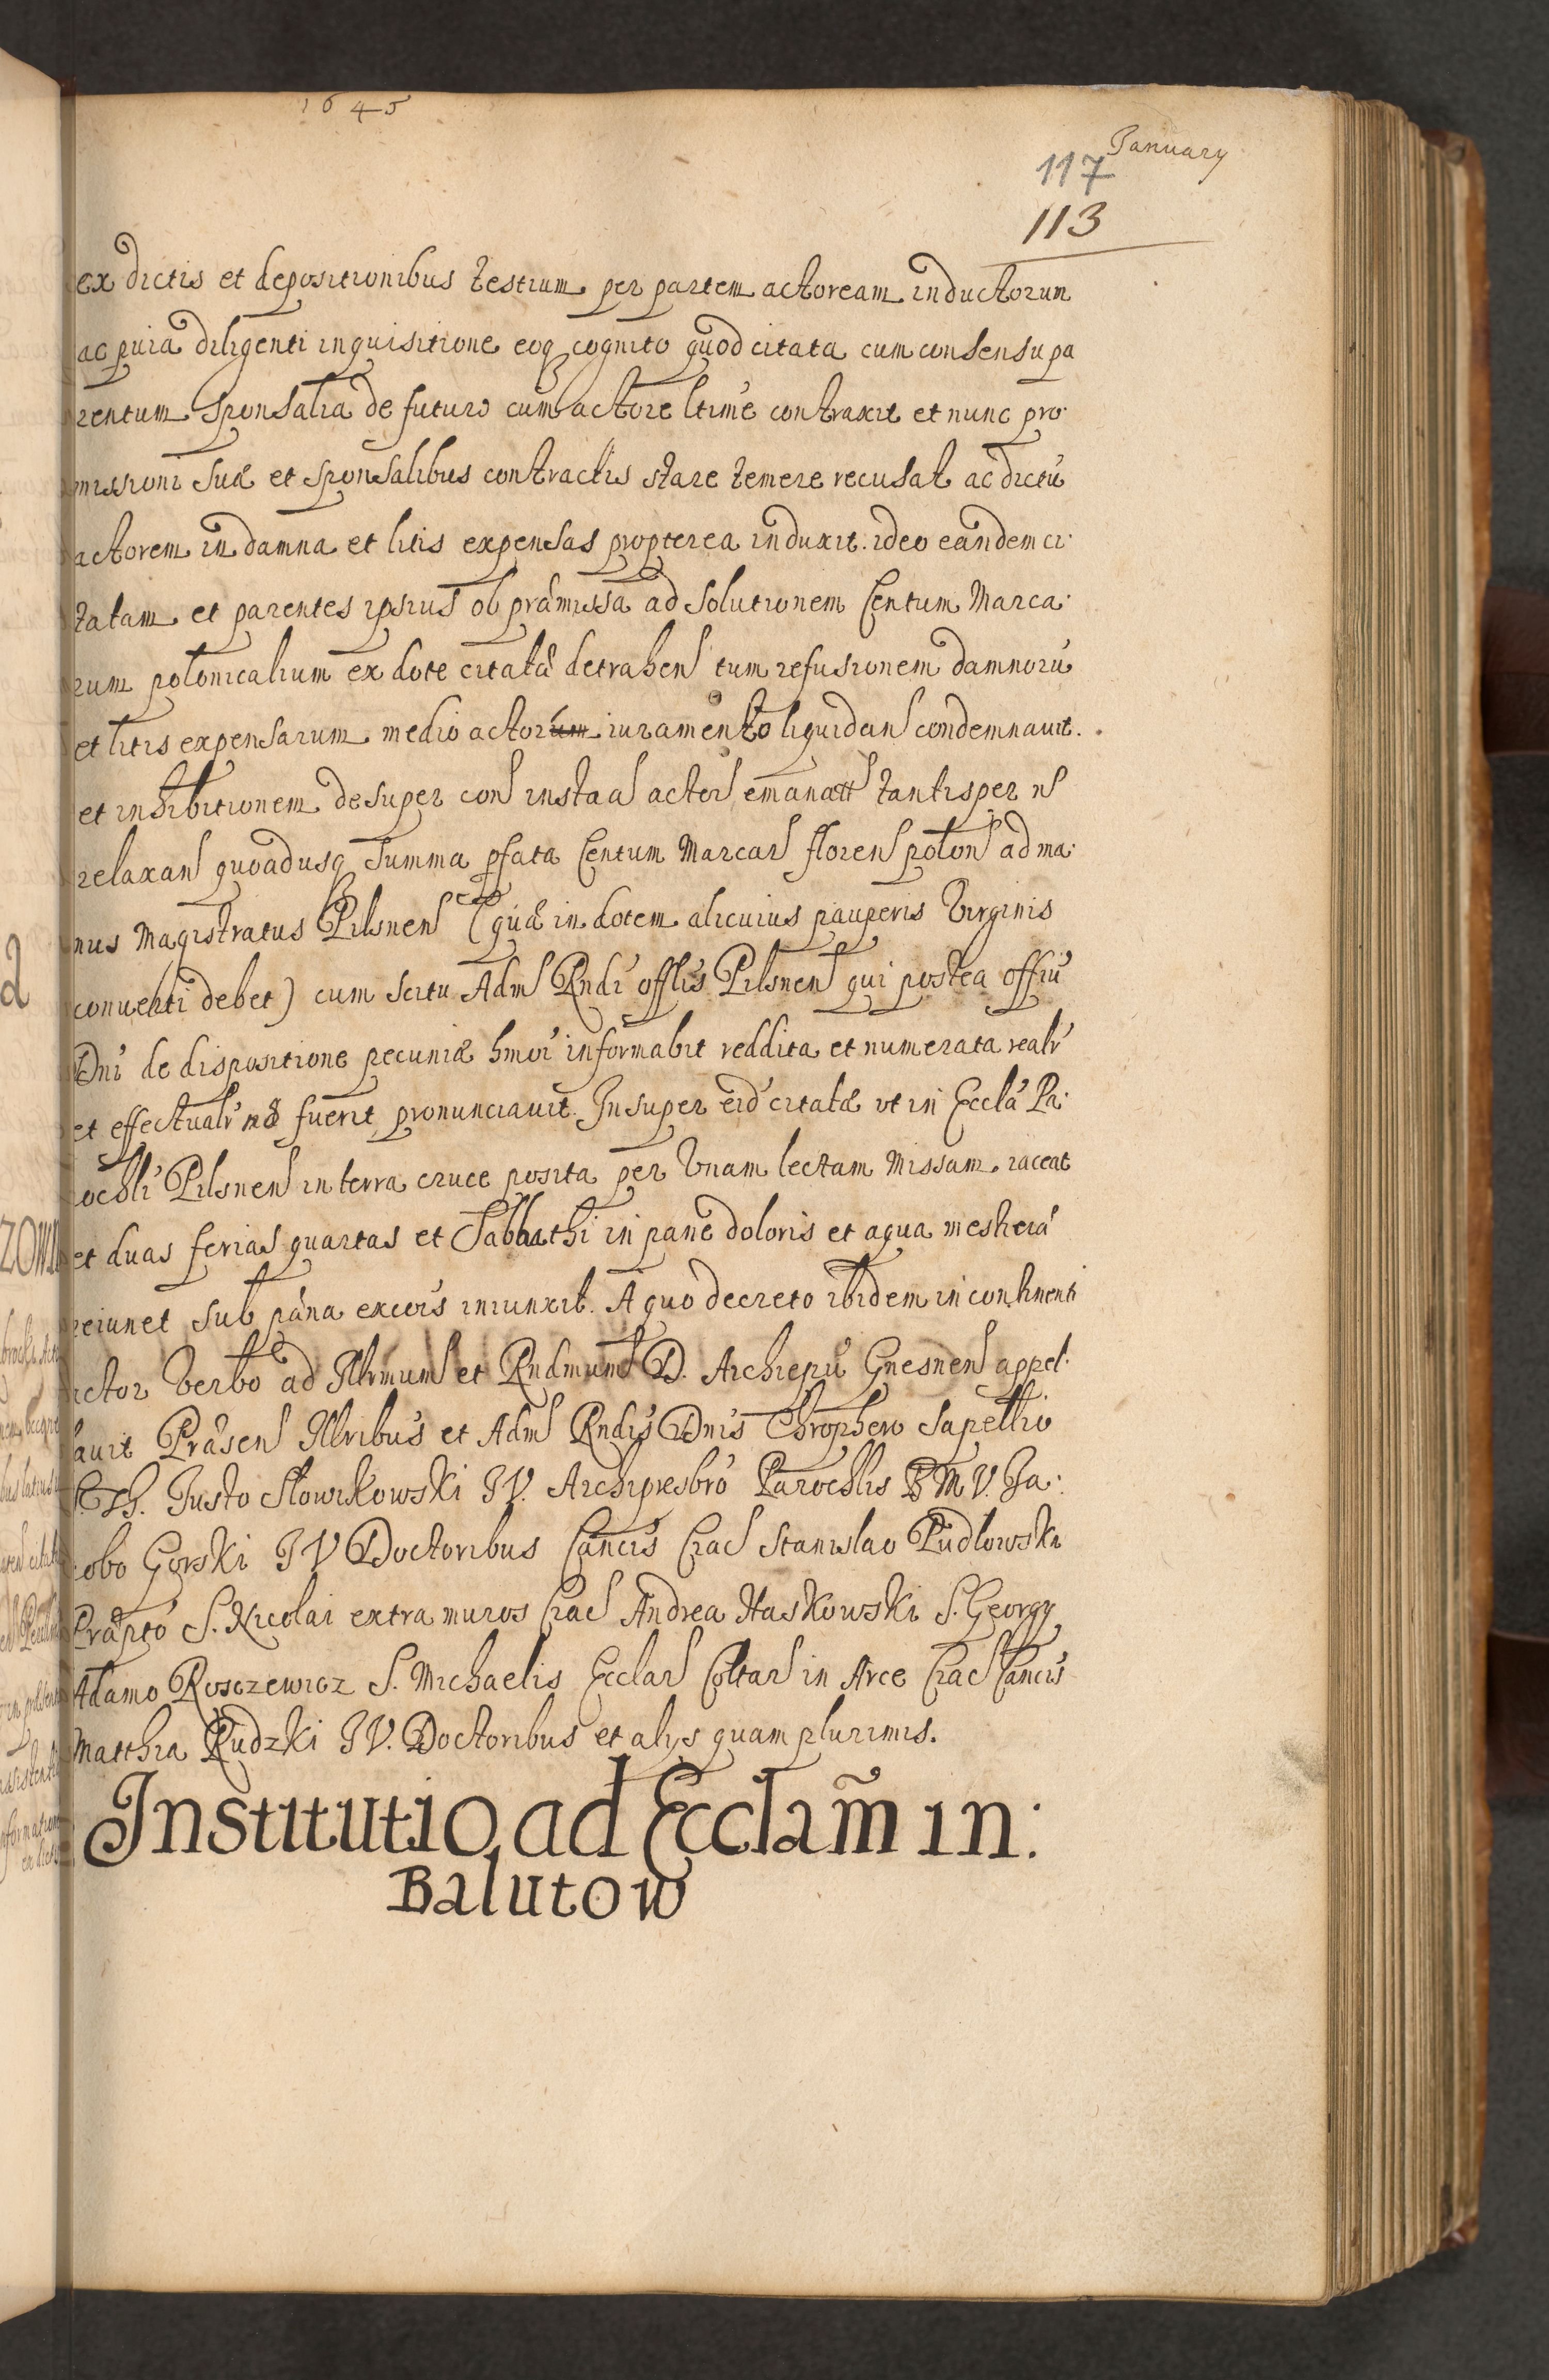 1645
January
117
113
ex dictis et depositionibus testium per partem actoream inductorum
ac pvia diligenti inquisitione eoq cognito quod citata cum consensu pa
rentum Sponsalia de futuro cum actore ltime contraxit et nunc pro
missioni suæ et sponsalibus contractis stare temere recusat ac dictu
actorem in damna et litis expensas propterea induxit. ideo eandem ci
tatam et parentes ipsius ob præmissa ad solutionem Centum Marca
rum polonicalium ex dote citatæ detrahen tum refusionem damnoru
et litis expensarum medio actorum iuramento liquidan condemnavit.
et inhibitionem desuper con insta a actor emanatt tantisper n
relaxan quoadusq summa pfata Centum Marcar floren polon ad ma
nus Magistratus Pilsnen (quæ in dotem alicuius pauperis Virginis
converti debet) cum scitu Adm Rndi offlis Pilsnen qui postea offiu
Dni de dispositione pecuniæ hmoi informabit reddita et numerata realr
et effectualr fuerit pronunciavit. Insuper eid citatæ ut in Eccla Pa
rochli Pilsnen in terra cruce posita per Unam lectam Missam iaceat
et duas ferias quartas et Sabbathi in pane doloris et aqua mesticiæ
ieiunet sub pæna excois iniunxit. A quo decreto ibidem in continenti
actor verbo ad Illrmum et Rndmum D. Archiepu Gnesnen appel
lavit Præsen Illribus et Adm Rndis Dnis Chrophero Sapellio
S. Th. Justo Słowikowski I V. Archipresbro Parochlis B M V. Ja
cobo Gorski I V Doctoribus Cancis Crac Stanislao Pudlowski
Præpto S. Nicolai extra muros Crac Andrea Haskowski S. Georgy
Adamo Roszewicz S. Michaelis Ecclar Coltar in Arce Crac Cancis
Matthia Rudzki I V. Doctoribus et alys quam plurimis.
Institutio ad Ecclam in:
Balutow